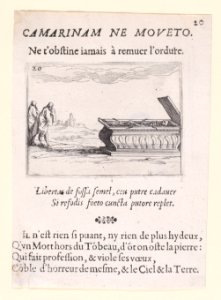 20
CAMARINAM NE MOVETO.
Ne t'obstine iamais à remuer l'ordure.
20
Libereas de fossa semel, ceu putre cadauer
Si refodis foeto cuncta putore replet.
Il n'est rien si puant, ny rien de plus hydeux,
Qu'vn Mort hors du Tõbeau, d'õt on oste la pierre:
Qui fait profession, & viole ses vœux,
Cõble d'horreur de mesme, & le Ciel & la Terre.